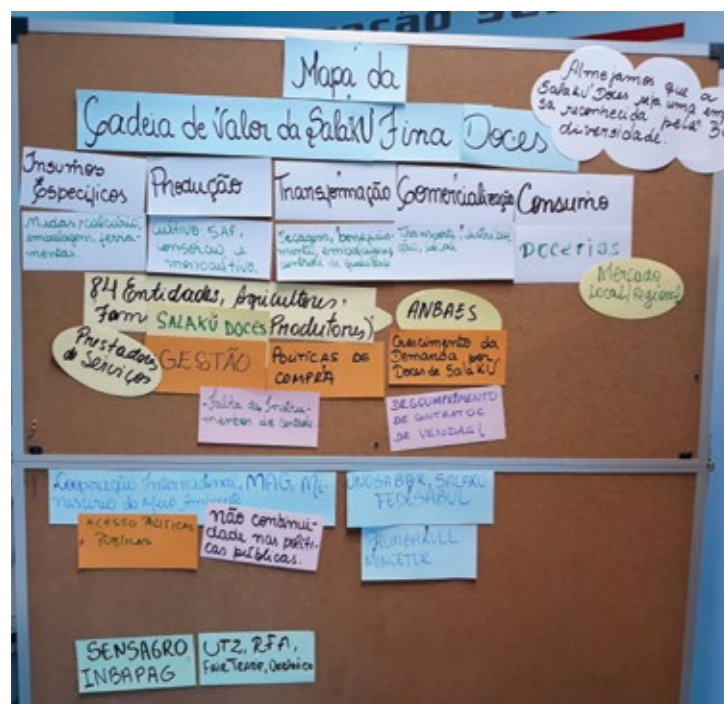 Mapa da
Cadeia de Valor da SalaKÚ Fina Doces
Almejamos que a
SalaKÚ Doces seja uma em
sa reconhecida pela
diversidade.
Insumos
Específicos
Produção
Transformação
Comercialização
Consumo
Mudas, calcário,
embalagem, ferra-
mentas.
Cultivo: SAF,
consórcio e
monocultivo.
Secagem, beneficia-
mento, embalagem,
controle de qualidade
Transporte, distribui-
ção, local
DOCERIAS
Mercado
Local/Regional
84 Entidades, Agricultores,
Fam
SALAKÚ DOCES
Produtores)
ANBAES
Prestadores
de Serviços
GESTÃO
POLÍTICAS DE
COMPRA
Crescimento da
Demanda por
Doces de SalaKÚ
-Falta de Instru-
mentos de controle
DESCUMPRIMENTO
DE CONTRATOS
DE VENDAS!
Cooperação Internacional, MAG, Mi-
nistério do Meio Ambiente
UNOSABAK, SALAKU
FEDESABUL
ACESSO POLÍTICAS
PÚBLICAS
não continui-
dade nas políti-
cas públicas.
MINCETUR
SENSAGRO
INBAPAG
UTZ, RFA,
Fair Trade, Orgânico